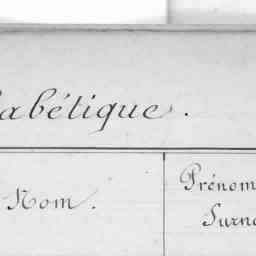 abétique.
Nom.
Prénom
Surno